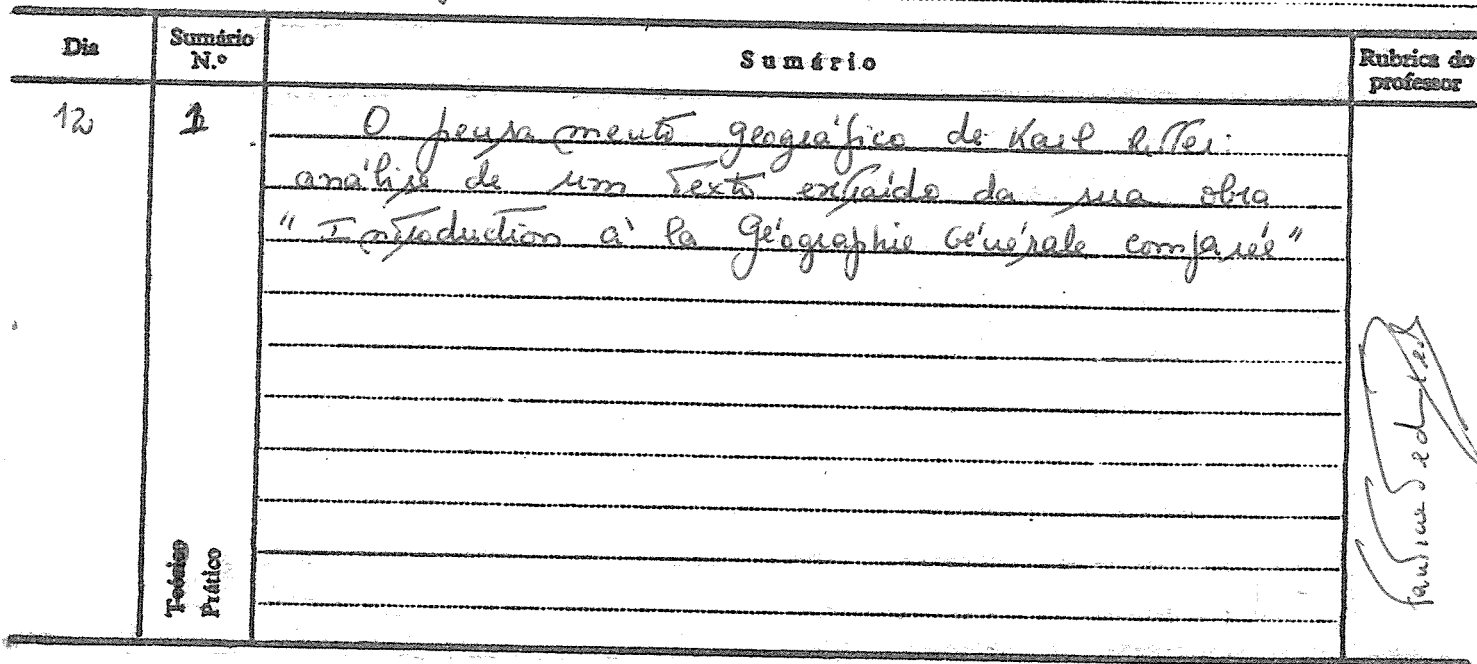 Dia Sumário N.º Sumário Rubrica do professor
12 1 O pensamento geográfico de Karl Ritter:
análise de um texto extraído da sua obra
"Introduction à la Géographie Générale comparée"
Teórico
Prático